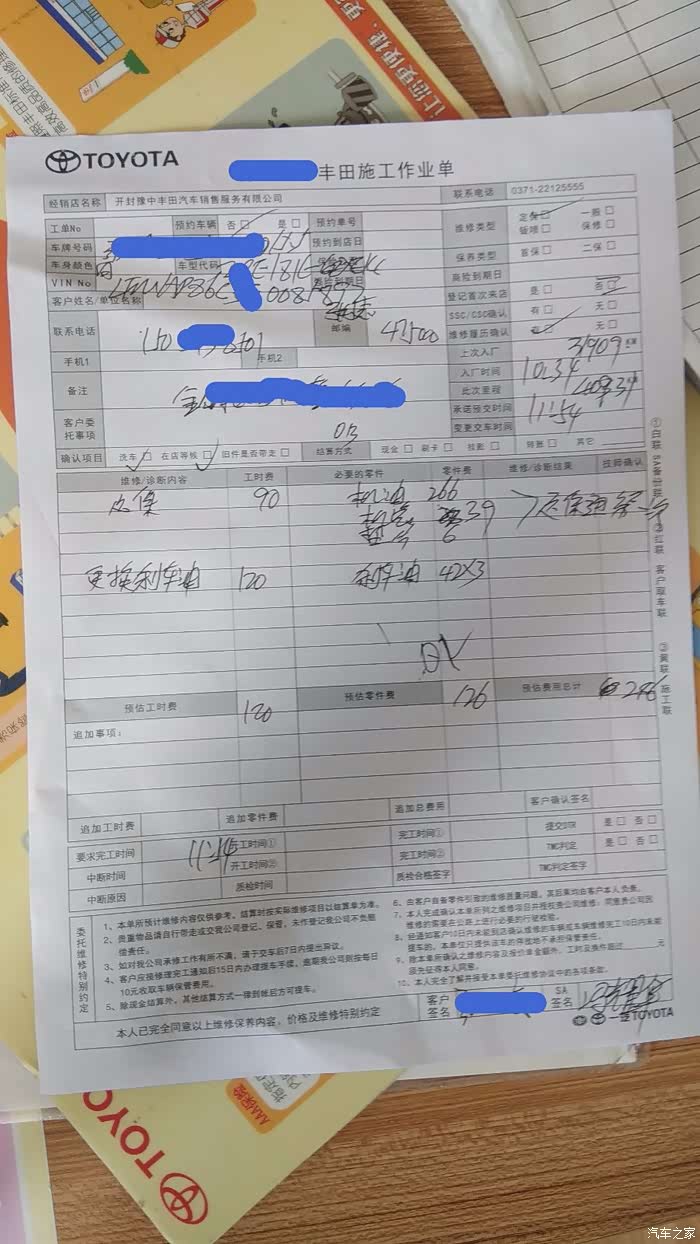 让您更便捷、更
TOYOTA
丰田施工作业单
经销店名称 开封豫中丰田汽车销售服务有限公司 联系电话 0371-22125555
工单No 预约车辆 否 是 预约单号 维修类型 定保 一般
钣喷 保修
车牌号码 预约到店日
车身颜色 白 车型代码 保养类型 首保 二保
VIN No 保险到期日
客户姓名/单位名称 登记首次来店 是 否
SSC/CSC确认 有 无
联系电话 邮编 475000 维修履历确认 有 无
手机1 手机2 上次入厂 31909 KM
入厂时间 10:34
备注 此次里程 40934
承诺预交时间 11:54
客户委托事项 变更交车时间
确认项目 洗车 在店等候 旧件是否带走 结算方式 现金 刷卡 挂账 转账 其它
维修/诊断内容 工时费 必要的零件 零件费 维修/诊断结果 技师确认
定保 90 机油 266
机滤 39
垫片 6
更换刹车油 120 刹车油 42×3
预估工时费 120 预估零件费 126 预估费用总计 246
追加事项：
追加工时费 追加零件费 追加总费用 客户确认签名
要求完工时间 11:54 开工时间① 完工时间① 提交DTR 是 否
中断时间 开工时间② 完工时间② TMC判定 是 否
中断原因 质检时间 质检合格签字 TMC判定签字
委托维修特别约定
1、本单所预计维修内容仅供参考，结算时按实际维修项目以结算单为准。
2、贵重物品请自行带走或交我公司登记、保管，未作登记我公司不负赔偿责任。
3、如对我公司承修工作有所不满，请于交车后7日内提出异议。
4、客户应接修理完工通知后15日内办理提车手续，逾期我公司则按每日10元收取车辆保管费用。
5、除现金结算外，其他结算方式一律到帐后方可提车。
6、由客户自备零件引致的维修质量问题，其后果均由客户本人负责。
7、本人完成确认本单所列之维修项目并授权贵公司维修，同意贵公司因维修的需要在公路上进行必要的行驶检验。
8、经通知客户10日内未能到店确认维修的车辆或车辆维修完工10日内未能提车的，本单位只提供该车的停放地不承担保管责任。
9、除本单所确认之维修内容及报价单金额外，工时及换件超过 元须先征得本人同意。
10、本人完全了解并接受本单委托维修协议中的各项条款。
本人已完全同意以上维修保养内容，价格及维修特别约定 客户签名 SA签名
一汽TOYOTA
①白联 SA备份联 ②红联 客户取车联 ③黄联 施工联
AAA保险
TOYOTA
汽车之家